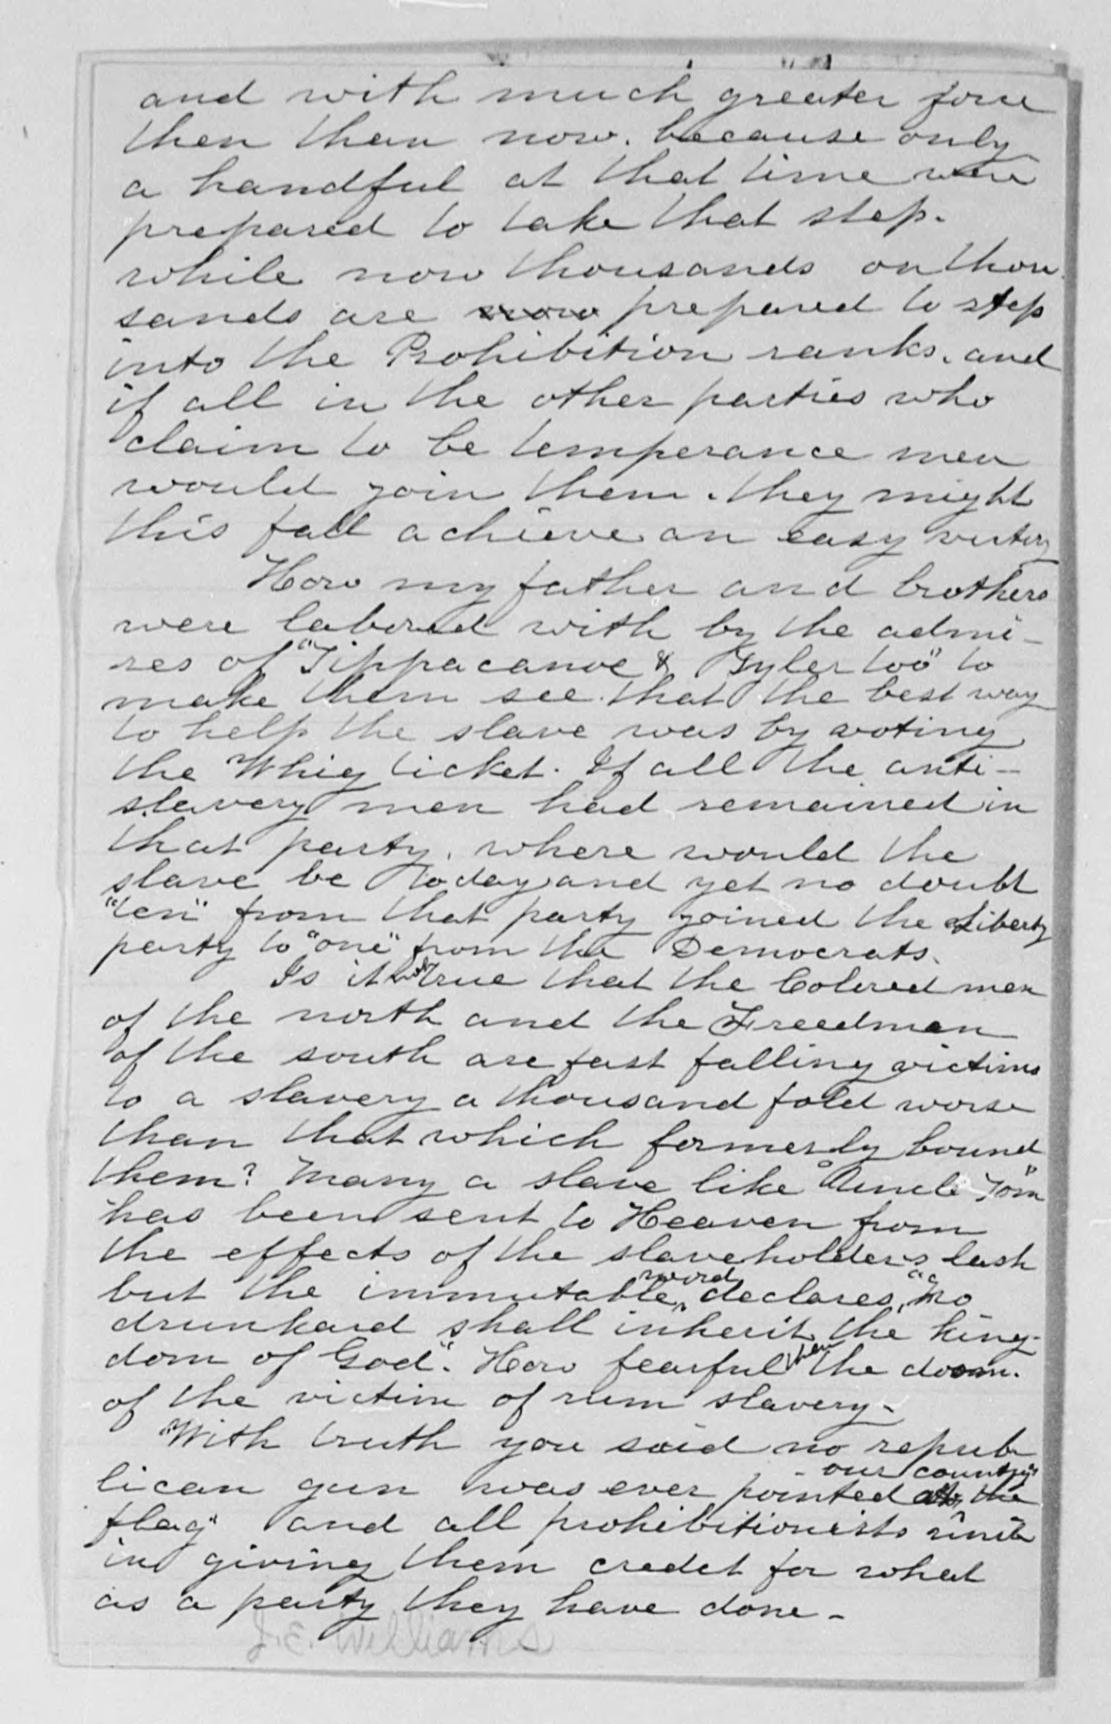 and with much greater force
then than now. because only
a handful at that time were
prepared to take that step.
while now thousands on thou
sands are now prepared to step
into the Prohibition ranks. and
if all in the other parties who
claim to be temperance men
would join them. they might
this fall achieve an easy victory
How my father and brothers
were labored with by the admi-
res of "Tippacanoe & Tyler too" to
make them see that the best way
to help the slave was by voting
the Whig ticket. If all the anti-
slavery men had remained in
that party, where would the
slave be today and yet no doubt
"ten" from that party joined the Liberty
party to "one" from the Democrats.
Is it not true that the Colered men
of the north and the Freedmen
of the south are fast falling victims
to a slavery a thousand fold worse
than that which formerly bound
them? Many a slave like "Uncle Tom"
has been sent to Heaven from
the effects of the slaveholders lash
but the immutable word declares, "no
drunkard shall inherit the king-
dom of God". How fearful then the doom.
of the victim of rum slavery.
"With truth you said no repub
lican gun was ever pointed at our country's
flag" and all prohibitionists unite
in giving them credet for what
as a party they have done-
J. E. Williams